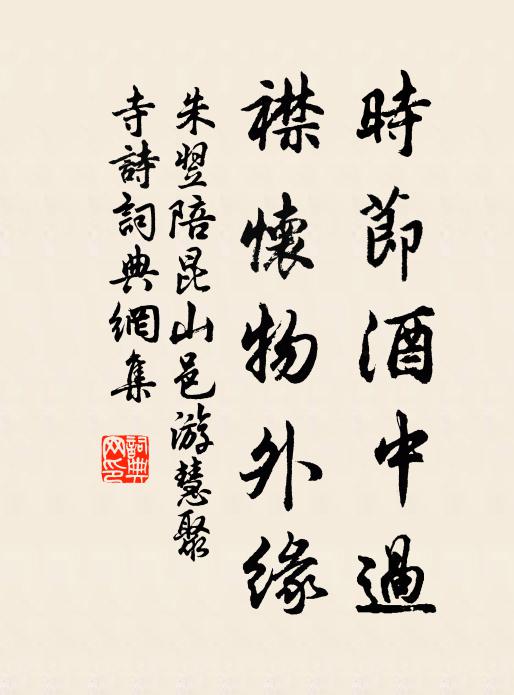 時節酒中過
襟懷物外緣
朱翌陪昆山邑游慧聚
寺詩詞典網集
詞典
网印